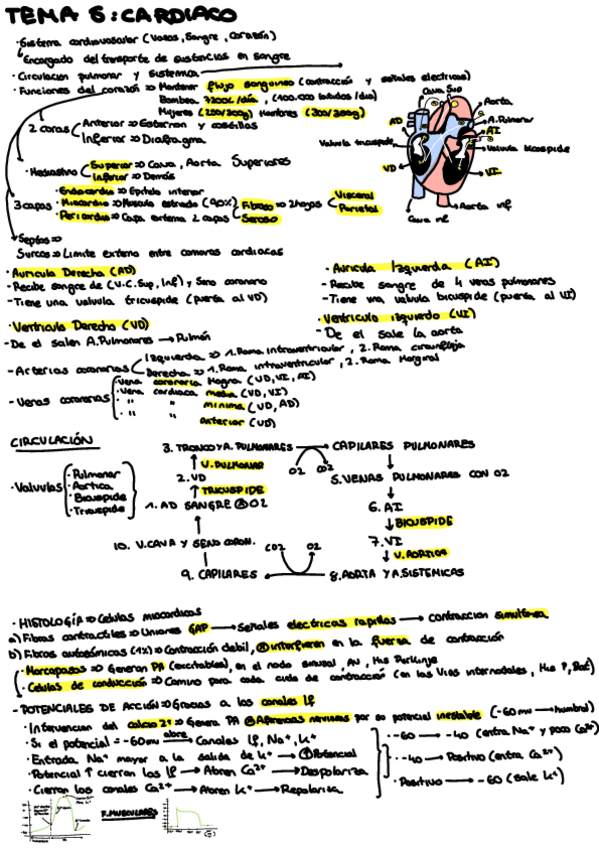 TEMA 5: CARDIACO
· Sistema cardiovascular (Vasos, Sangre, Corazón)
Encargado del transporte de sustancias en sangre
· Circulacion pulmonar y sistemica
· Funciones del corazón ⇒ Mantener flujo sanguineo (contracción y señales electricas)
Bombea 7200L/dia, (100.000 latidos/dia)
Mujeres (250/300g) Hombres (300/350g)
2 caras
Anterior ⇒ Esternon y costillas
Inferior ⇒ Diafragma
· Mediastino
Superior ⇒ Cava, Aorta Superiores
Inferior ⇒ Demás
3 capas
· Endocardio ⇒ Epitelio interior
· Miocardio ⇒ Musculo estriado (90%)
· Pericardio ⇒ Capa externa 2 capas
Fibroso ⇒ 2 hojas
Seroso
Visceral
Parietal
Cava Sup
Aorta
A. Pulmonar
AI
Valvula bicuspide
VI
Aorta inf
Cava inf
VD
Valvula tricuspide
AD
Septos ⇒
Surcos ⇒ Limite externo entre camaras cardiacas
· Auricula Derecha (AD)
- Recibe sangre de (V.C. Sup, Inf) y Seno coronario
- Tiene una valvula tricuspide (puerta al VD)
· Auricula Izquierda (AI)
- Recibe sangre de 4 venas pulmonares
- Tiene una valvula bicuspide (puerta al VI)
· Ventriculo Derecho (VD)
- De el salen A. Pulmonares → Pulmón
· Ventriculo izquierdo (VI)
- De el sale la aorta
- Arterias coronarias
Izquierda ⇒ 1. Rama intraventricular, 2. Rama circunfleja
Derecha ⇒ 1. Rama intraventricular, 2. Rama Marginal
- Venas coronarias
· Vena coronaria Magna (VD, VI, AI)
· Vena cardiaca media (VD, VI)
· " " minima (VD, AD)
· " " anterior (VD)
CIRCULACIÓN
· Valvulas
· Pulmonar
· Aortica
· Bicuspide
· Tricuspide
3. TRONCO Y A. PULMONARES
O2 CO2
CAPILARES PULMONARES
V. PULMONAR
2. VD
TRICUSPIDE
1. AD SANGRE O2
5. VENAS PULMONARES CON O2
6. AI
BICUSPIDE
7. VI
V. AORTICA
10. V. CAVA Y SENO CORON.
CO2 O2
9. CAPILARES
8. AORTA Y A. SISTEMICAS
· HISTOLOGÍA ⇒ Celulas miocardicas
a) Fibras contractiles ⇒ Uniones GAP → Señales electricas rapidas → contraccion simultánea
b) Fibras autosómicas (1%) ⇒ Contracción debil, interfieren en la fuerza de contracción
· Marcapasos ⇒ Generan PA (excitables), en el nodo sinusal, AV, His Purkinje
· Celulas de conducción ⇒ Camino para cada ciclo de contracción (en las Vias internodales, His P,
- POTENCIALES DE ACCIÓN ⇒ Gracias a los canales If
· Intervencion del calcio 2+ ⇒ Genera PA Aferencias nerviosas por su potencial inestable (-60mv → humbral)
· Si el potencial = -60mu abre → Canales If, Na+, K+
· Entrada Na+ mayor a la salida de K+ → Potencial
· Potencial ↑ cierran los If → Abren Ca2+ → Despolariza
· Cierran los canales Ca2+ → Abren K+ → Repolariza
· -60 → -40 (entra Na+ y poco Ca2+)
· -40 → Positivo (entra Ca2+)
· Positivo → -60 (Sale K+)
F. MUSCULARES